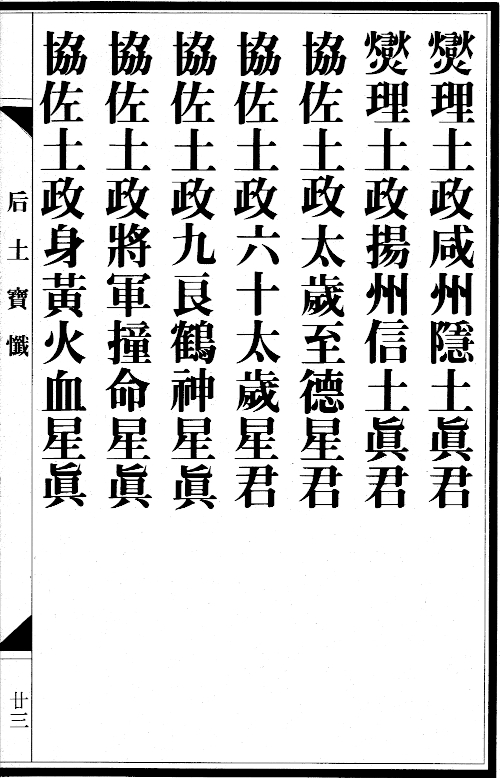 燮理土政咸州隱土眞君
燮理土政揚州信土眞君
協佐土政太歲至德星君
協佐土政六十太歲星君
協佐土政九良鶴神星眞
協佐土政將軍撞命星眞
協佐土政身黃火血星眞
后土寶懺
廿三